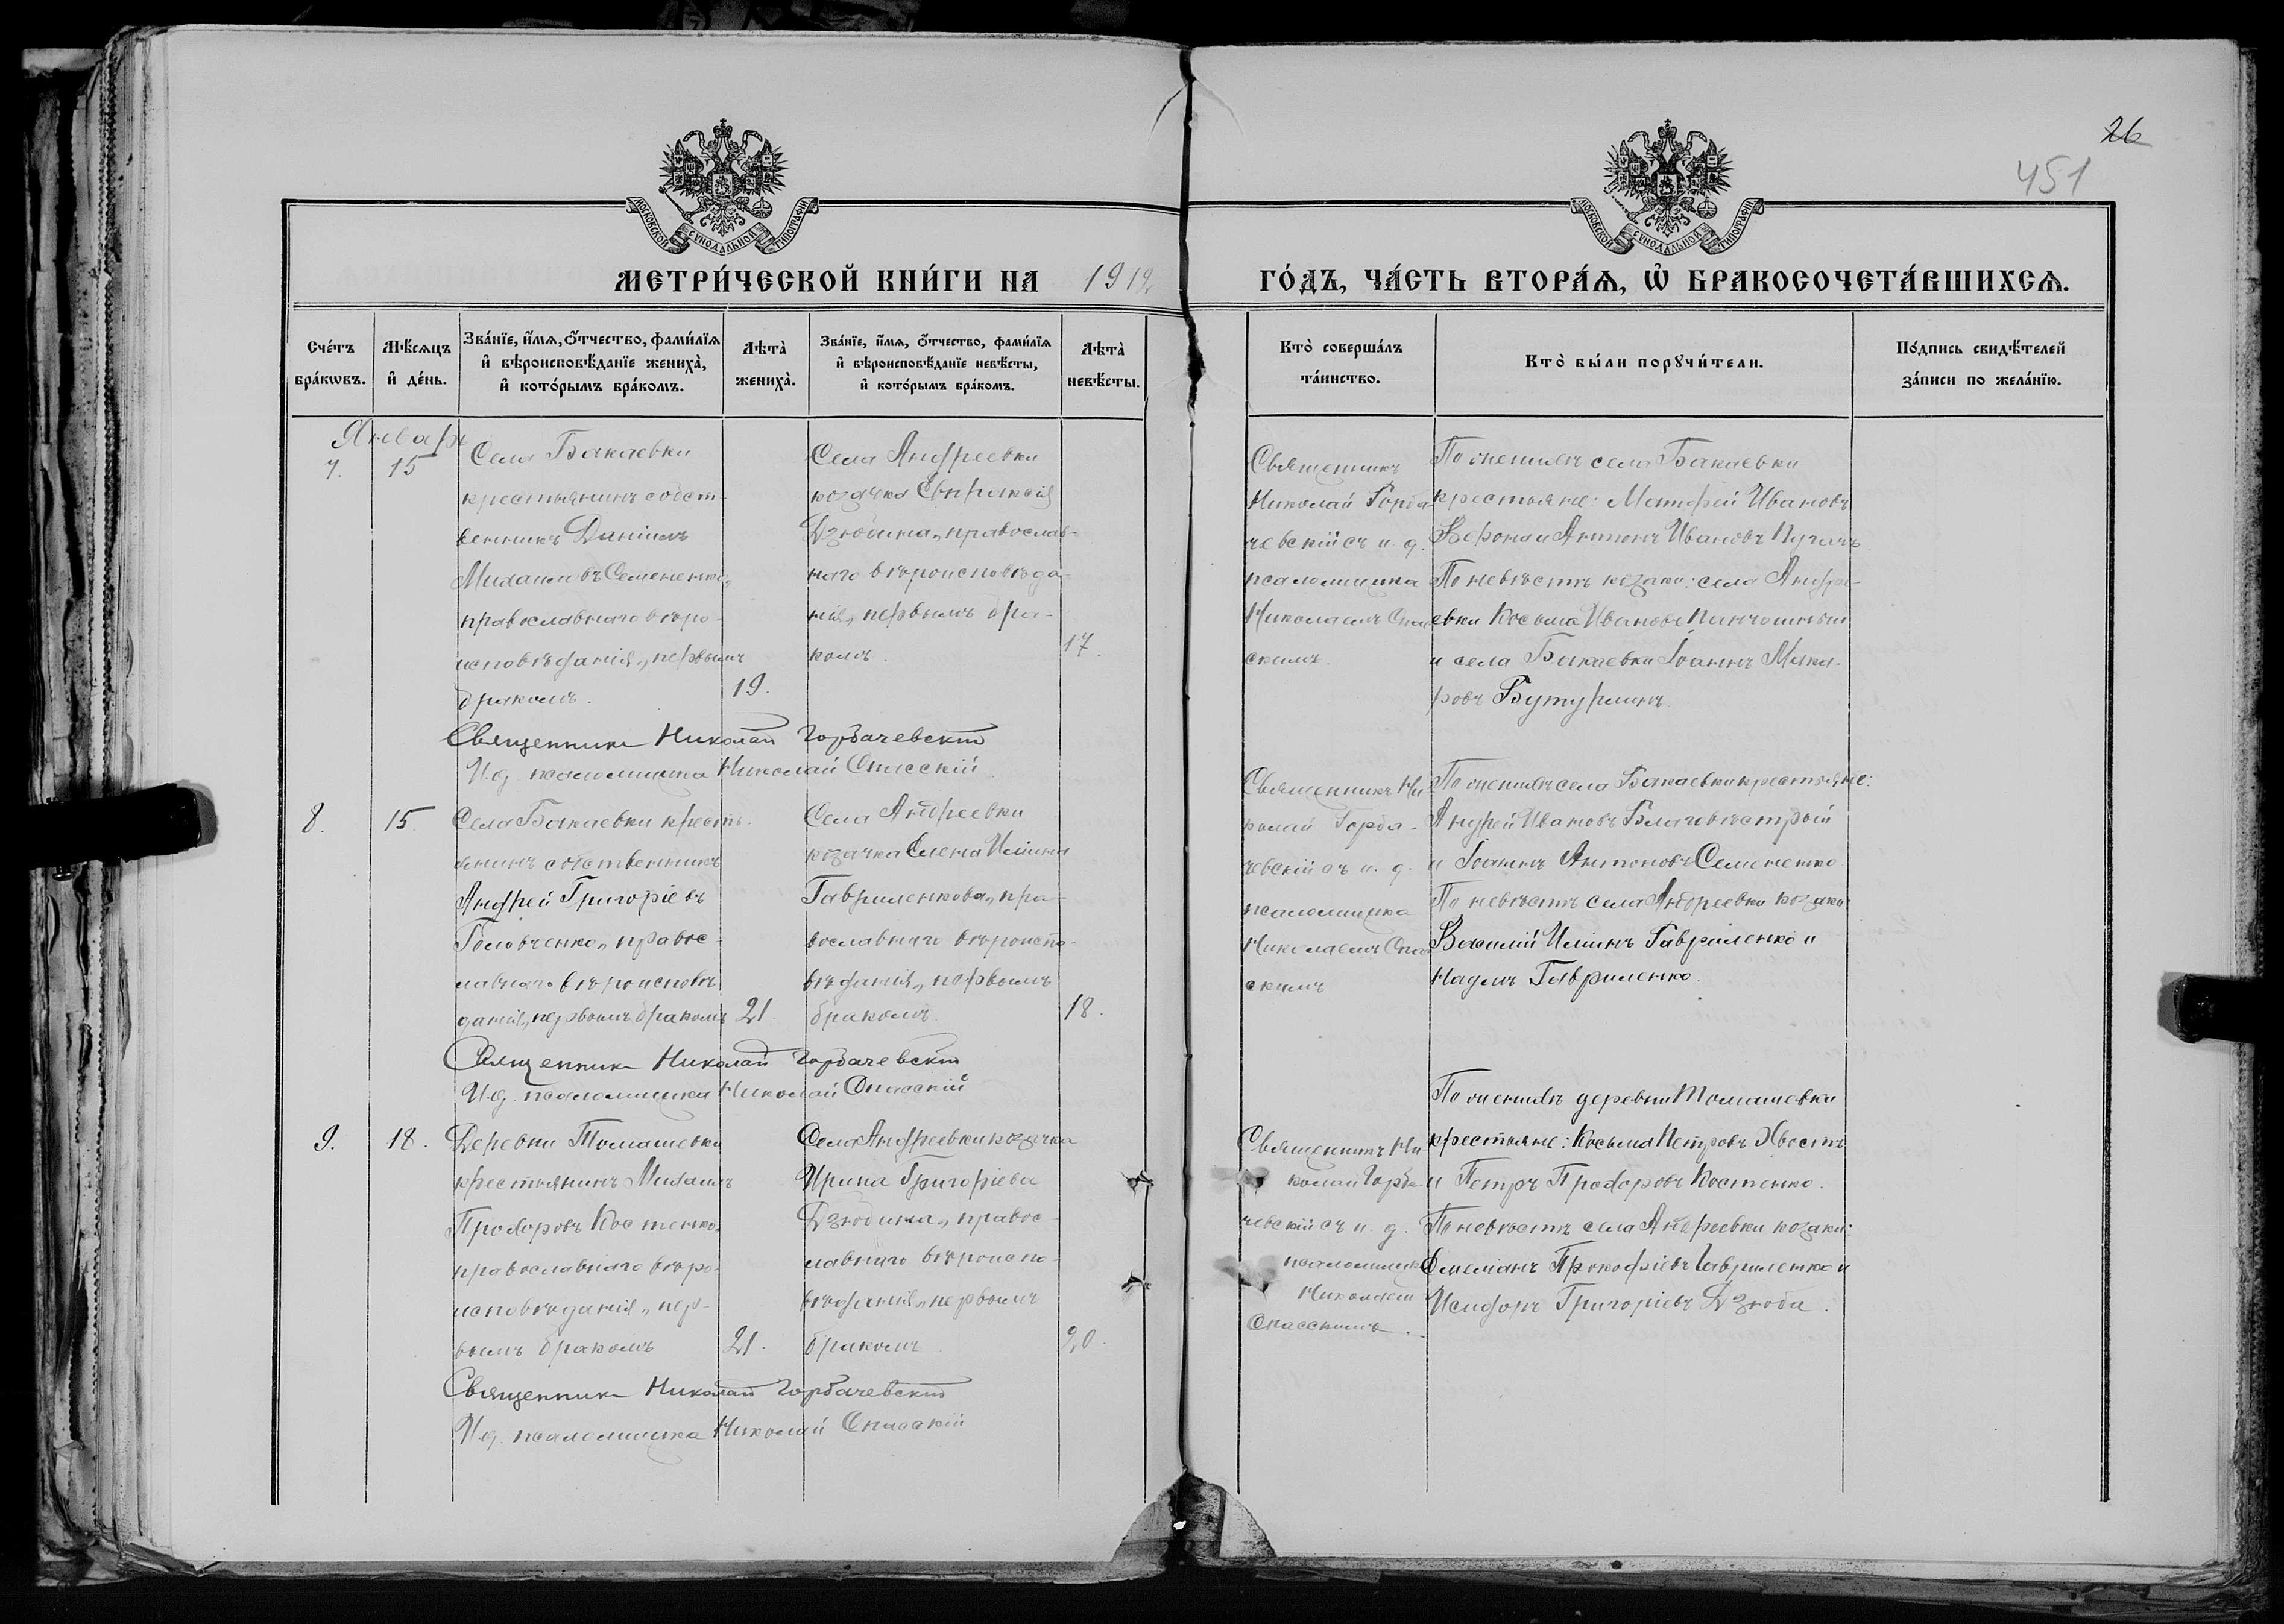 26
451
МОСКОВСКОЙ СУНОДАЛЬНОЙ ТИПОГРАФІИ
МОСКОВСКОЙ СУНОДАЛЬНОЙ ТИПОГРАФІИ
МЕТРИ́ЧЕСКОЙ КНИ́ГИ НА 1912
ГО́ДЪ, ЧА́СТЬ ВТОРА́Ѧ, Ѡ҆ БРАКОСОЧЕТА́ВШИХСѦ.
Сче́тъ бра́кѡвъ.
Мѣ́сѧцъ и҆ де́нь.
Зва́нїе, и҆́мѧ, ѻ҆́тчество, фами́лїѧ и҆ вѣроисповѣ́данїе жениха̀, и҆ кото́рымъ бра́комъ.
Лѣта̀ жениха̀.
Зва́нїе, и҆́мѧ, ѻ҆́тчество, фами́лїѧ и҆ вѣроисповѣ́данїе невѣ́сты, и҆ кото́рымъ бра́комъ.
Лѣта̀ невѣ́сты.
Кто̀ соверша́лъ та́инство.
Кто̀ бы́ли порꙋчи́тели.
По́дпись свидѣ́телей за́писи по жела́нїю.
Январь
7.
15
Села Бакаевки
крестьянинъ собст-
венникъ Даніилъ
Михаиловъ Семененко,
православнаго веѣро-
исповѣданія, первымъ
бракомъ.
19.
Села Андреевки
козачка Евпраксія
Дзюбина, православ-
наго вѣроисповѣда-
нія, первымъ бра-
комъ
17.
Священникъ
Николай Горба-
чевскій съ и. д.
псаломщика
Николаемъ Спас
скимъ.
По женихѣ села Бакаевки
крестьяне: Матфей Ивановъ
и Антонъ Ивановъ Пугачъ
По невѣстѣ козаки: села Андре-
евки Косьма Ивановъ
и села Бакаевки Іоаннъ
ровъ Бутурлинъ
Священникъ Николай Горбачевскій
И.д. псаломщика Николай Спасскій
8.
15
Села Бакаевки кресть-
янинъ собственникъ
Андрей Григоріевъ
Головченко, правос-
лавнаго вѣроисповѣ
данія, первымъ бракомъ
21.
Села Андреевки
козачка Елена Ильина
Гавриленкова, пра-
вославнаго вѣроиспо-
вѣданія, первымъ
бракомъ
18.
Священникъ Ни
колай Горба-
чевскій съ и. д.
псаломщика
Николаемъ Спас
скимъ
По женихѣ села Бакаевки крестьяне:
Андрей Ивановъ
и Іоаннъ Антоновъ Семененко
По невѣстѣ села Андреевки козаки:
Василій Ильинъ Гавриленко и
Наумъ Гавриленко.
Священникъ Николай Горбачевскій
И.д. псаломщика Николай Спасскій
9.
18.
Деревни Томашевки
крестьянинъ Михаилъ
Прохоровъ Костенко,
православнаго вѣро-
исповѣданія, пер-
вымъ бракомъ
21.
Села Андреевки козачка
Ирина Григоріева
Дзюбина, правос-
лавнаго вѣроиспо-
вѣданія, первымъ
бракомъ
20.
Священникъ Ни
колай Горба-
чевскій съ и. д.
псаломщика
Николаемъ
Спасскимъ.
По женихѣ деревни Томашевки
крестьяне: Косьма Петровъ Хвостъ
и Петръ Прохоровъ Костенко.
По невѣстѣ села Андреевки козаки:
Емеліанъ Прокофіевъ Гавриленко и
Исидоръ Григоріевъ Дзюба.
Священникъ Николай Горбачевскій
И.д. псаломщика Николай Спасскій